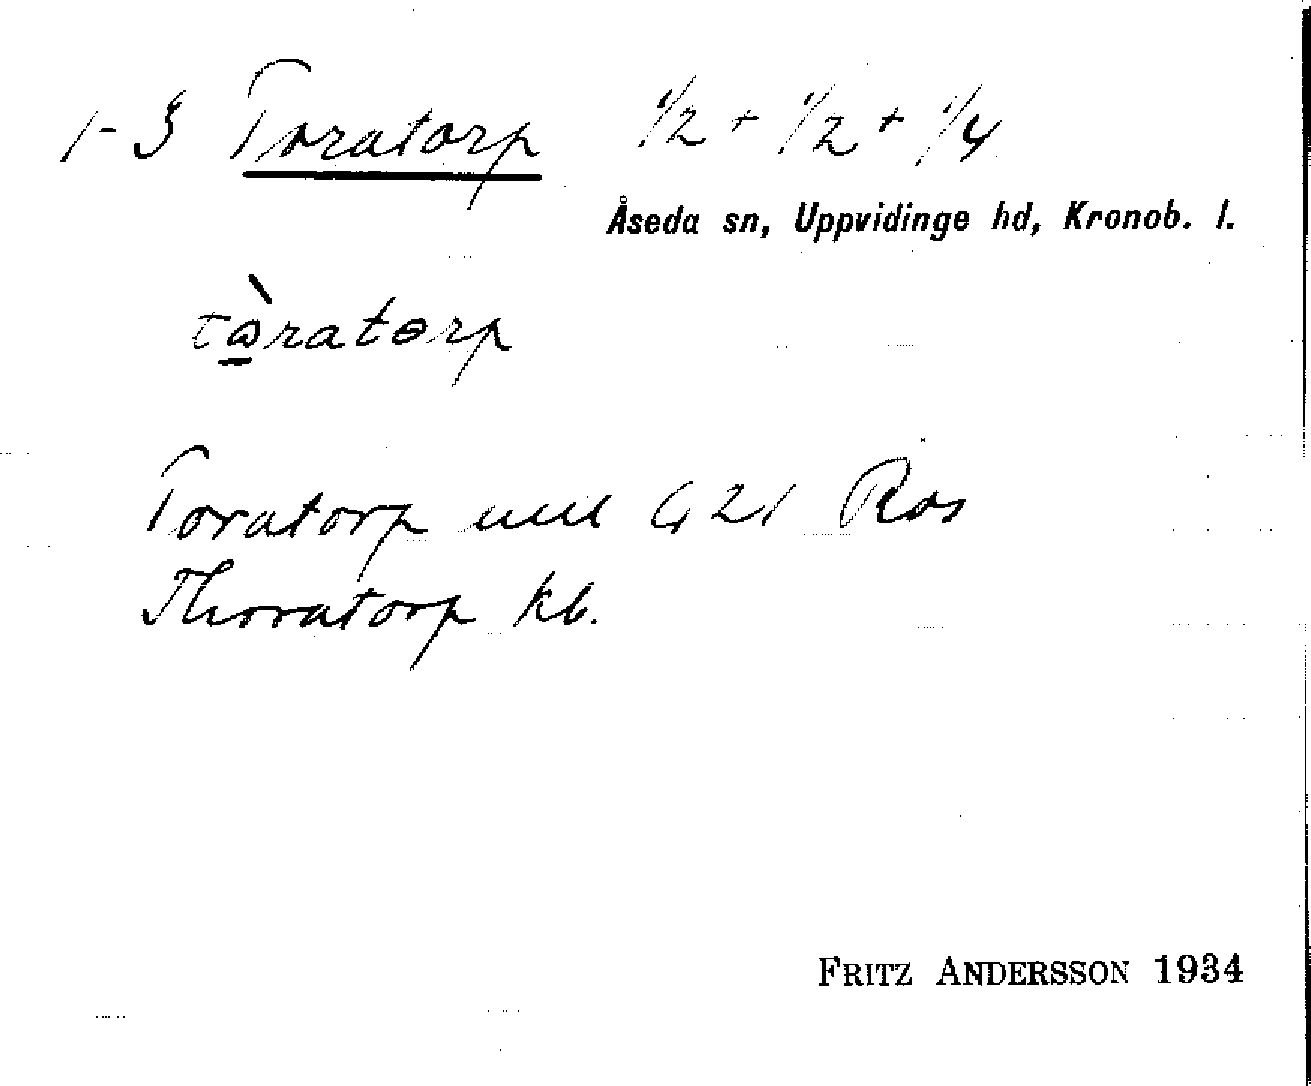 1-3 Toratorp 1/2 + 1/2 + 1/4
Åseda sn, Uppvidinge hd, Kronob. l.
tàratɵrp
Toratorp G 21 Ros
Thoratorp kb.
FRITZ ANDERSSON 1934